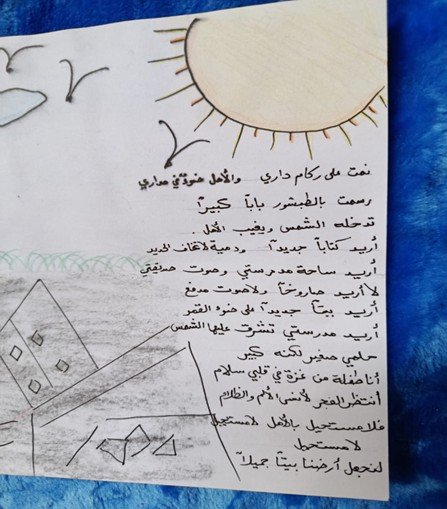 نمت على ركام داري والأمل ضوءٌ في مداري
رسمت بالطبشور باباً كبيراً
تدخله الشمس ويغيب الأهل.
أريد كتاباً جديداً ودمية لا تخاف الحديد
أريد ساحة مدرستي وصوت صديقتي
لا أريد صاروخاً ولا صوت مدفع
أريد بيتاً جديداً على ضوء القمر
أريد مدرستي تشرق عليها الشمس
حلمي صغير لكنه كبير
أنا طفلة من غزة في قلبي سلام
أنتظر الفجر لأنسى الألم والظلام
فلا مستحيل بالأمل لا مستحيل
لا مستحيل
لنجعل أرضنا بيتاً جميلاً